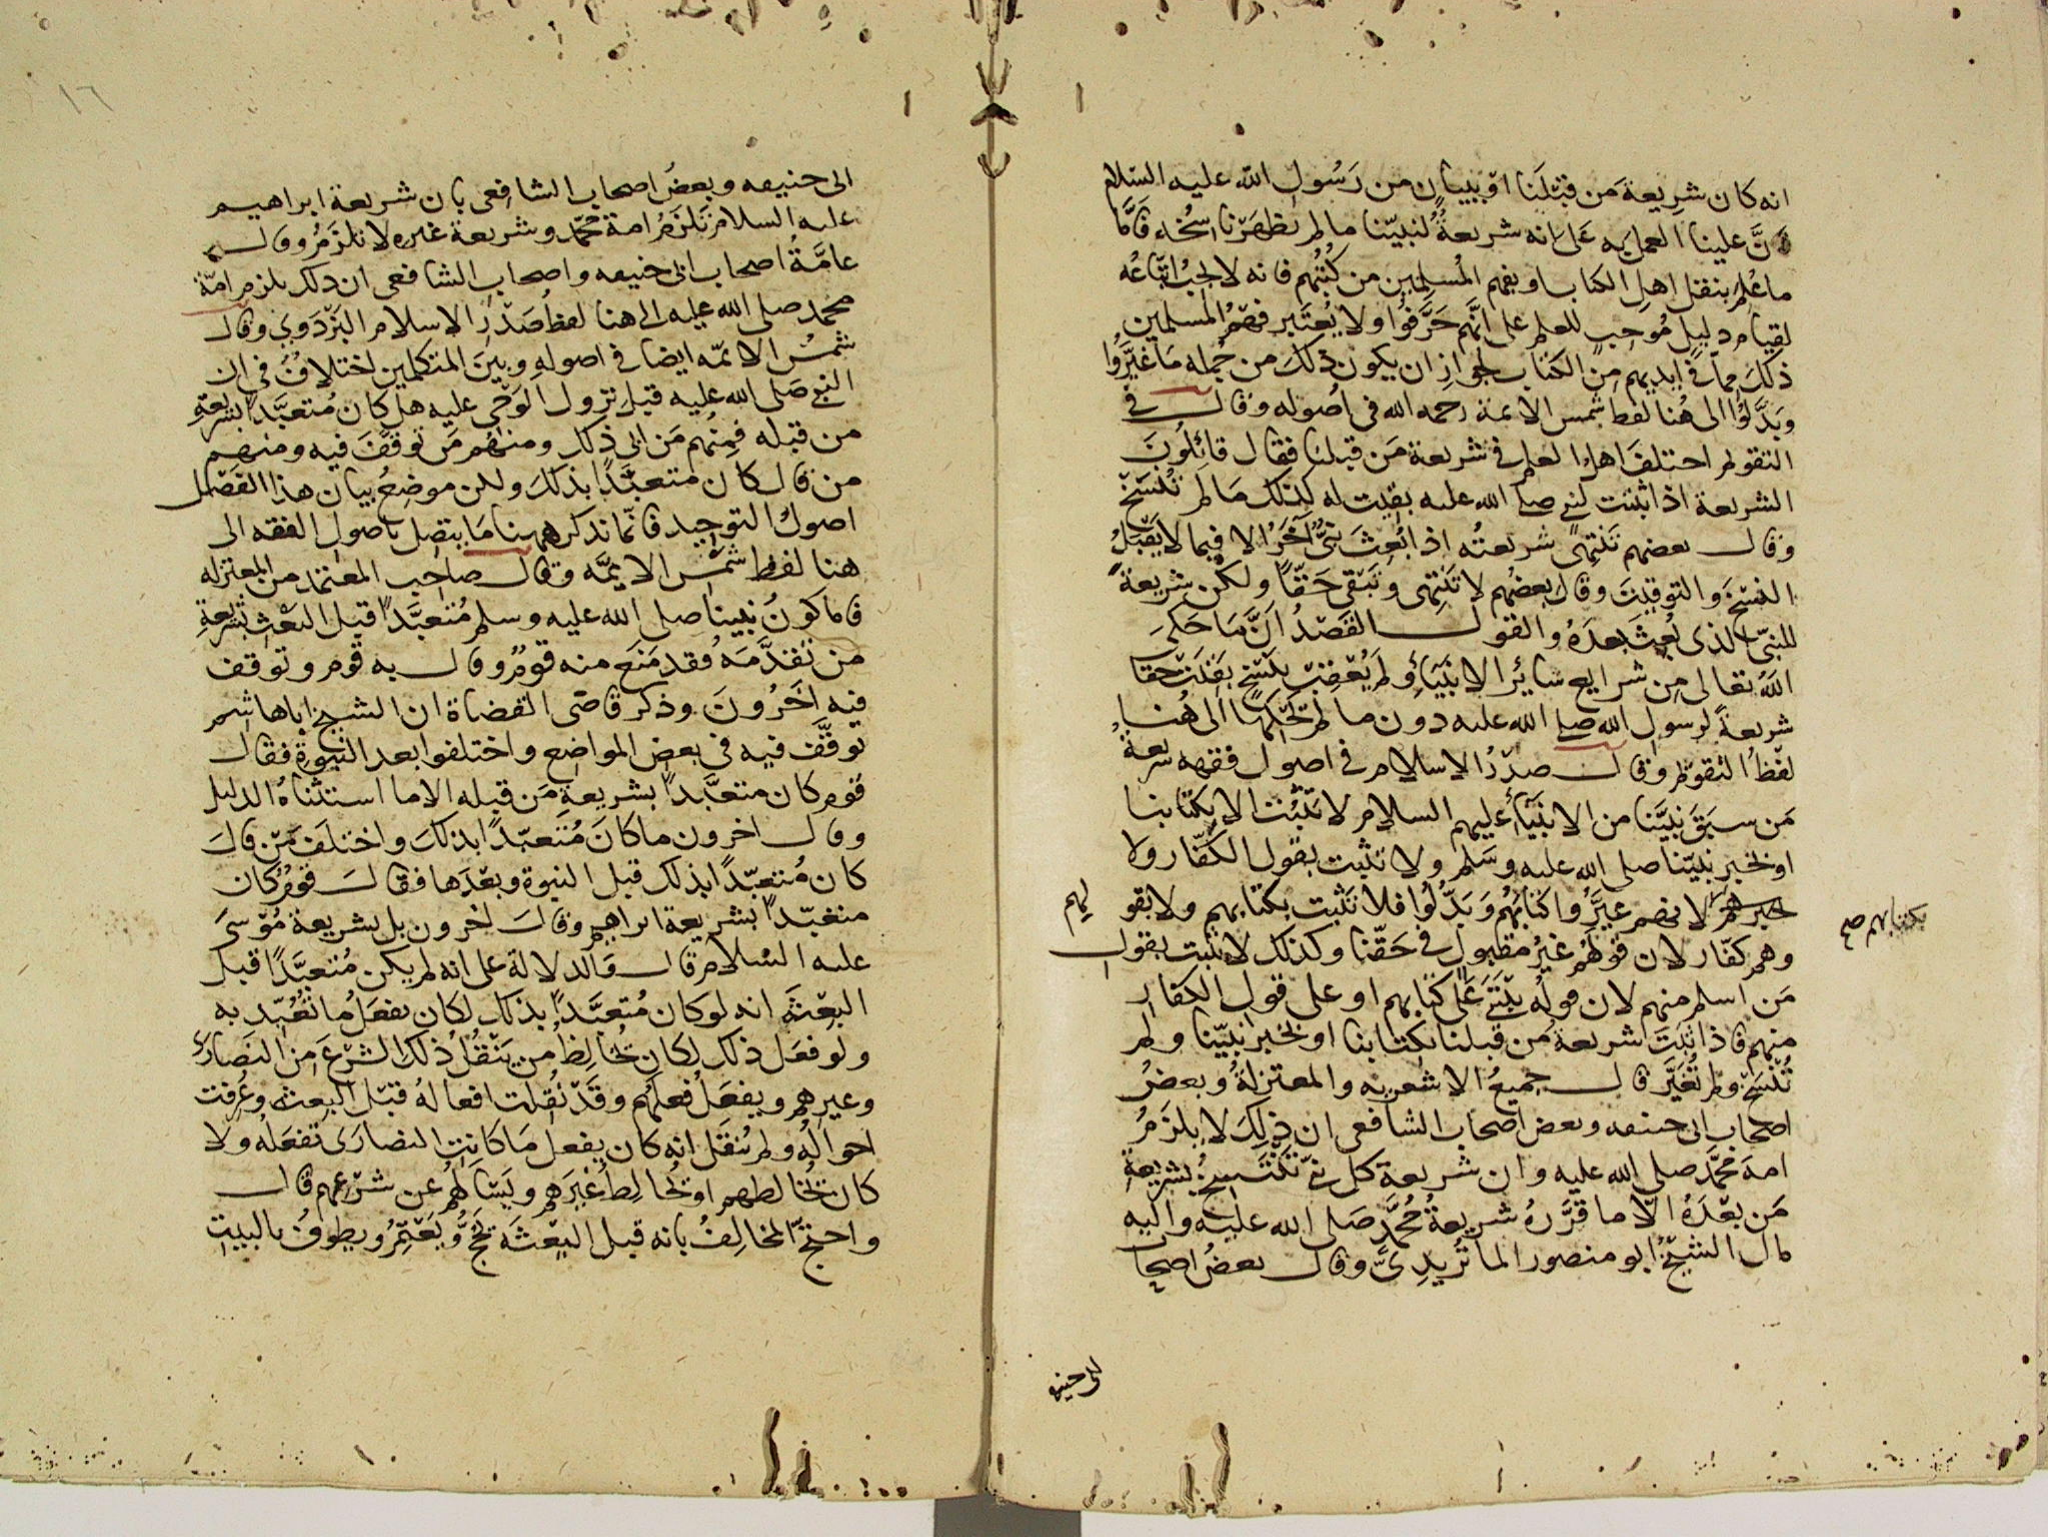 انه كان شريعة من قبلنا او ببيان من رسول الله عليه السلام
فان علينا العمل به على انه شريعة لنبينا ما لم تظهر ناسخه فاما
ما علم بنقل اهل الكتاب او بفهم المسلمين من كتبهم فانه لا يجب اتباعه
لقيام دليل موجب للعلم على انهم حرفوا ولا يعتبر فهم المسلمين
ذلك مما في ايديهم من الكتاب لجواز ان يكون ذلك من جملة ما غيروا
وبدلوا الى هنا لفظ شمس الائمة رحمه الله فى اصوله وقال فى
التقويم اختلف اهل العلم فى شريعة من قبلنا فقال قائلون
الشريعة اذا ثبتت لنبى صلى الله عليه بقيت له كذلك ما لم تنسخ
وقال بعضهم تنتهى شريعته اذا بعث نبى آخر الا فيما لا يقبل
النسخ والتوقيت وقال بعضهم لا تنتهى وتبقى حقا ولكن شريعة
للنبى الذى بعث بعده والقول القصد ان ما حكى
الله تعالى من شرايع سائر الانبياء ولم يعقب بنسخ بقيت حقا
شريعة لرسول الله صلى الله عليه دون ما لم يحكها الى هنا
لفظ التقويم وقال صدر الاسلام فى اصول فقهه شريعة
من سبق نبينا من الانبياء عليهم السلام لا تثبت الا بكتابنا
او بخبر نبينا صلى الله عليه وسلم ولا تثبت بقول الكفار ولا
بكتابهم صح
خبرهم لانهم غيروا كتابهم وبدلوا فلا تثبت بكتابهم ولا بقولهم
وهم كفار لان قولهم غير مقبول فى حقنا وكذلك لا يثبت بقول
من اسلم منهم لان قوله يبتنى على كتابهم او على قول الكفار
منهم فاذا ثبتت شريعة من قبلنا بكتابنا او بخبر نبينا ولم
تنسخ ولم تغير قال جميع الاشعرية والمعتزلة وبعض
اصحاب ابى حنيفه وبعض اصحاب الشافعى ان ذلك لا يلزم
امة محمد صلى الله عليه وان شريعة كل نبى تنتسخ بشريعة
من بعده الا ما قرره شريعة محمد صلى الله عليه واليه
مال الشيخ ابو منصور الماتريدى وقال بعض اصحاب
ابى حنيفه
١٦
ابى حنيفه وبعض اصحاب الشافعى بان شريعة ابراهيم
عليه السلام تلزم امة محمد وشريعة غيره لا تلزم وقال
عامة اصحاب ابى حنيفه واصحاب الشافعى ان ذلك يلزم امة
محمد صلى الله عليه الى هنا لفظ صدر الاسلام البزدوى وقال
شمس الائمه ايضا فى اصوله وبين المتكلمين اختلاف فى ان
النبى صلى الله عليه قبل نزول الوحى عليه هل كان متعبدا بشريعة
من قبله فمنهم من ابى ذلك ومنهم من توقف فيه ومنهم
من قال كان متعبدا بذلك ولكن موضع بيان هذا الفصل
اصول التوحيد فانما نذكر ههنا ما يتصل باصول الفقه الى
هنا لفظ شمس الائمه وقال صاحب المعتمد من المعتزله
فاما كون نبينا صلى الله عليه وسلم متعبدا قبل البعث بشريعة
من تقدمه فقد منع منه قوم وقال به قوم وتوقف
فيه اخرون وذكر قاضى القضاة ان الشيخ اباهاشم
توقف فيه فى بعض المواضع واختلفوا بعد النبوة فقال
قوم كان متعبدا بشريعة من قبله الا ما استثناه الدليل
وقال اخرون ما كان متعبدا بذلك واختلف من قال
كان متعبدا بذلك قبل النبوة وبعدها فقال قوم كان
متعبدا بشريعة ابراهيم وقال اخرون بل بشريعة موسى
عليه السلام قال والدلالة على انه لم يكن متعبدا قبل
البعثة انه لو كان متعبدا بذلك لكان يفعل ما تعبد به
ولو فعل ذلك لكان يخالط من ينقل ذلك الشرع من النصارى
وغيرهم ويفعل فعلهم وقد نقلت افعاله قبل البعثه وعرفت
احواله ولم ينقل انه كان يفعل ما كانت النصارى تفعله ولا
كان يخالطهم او يخالط غيرهم ويسألهم عن شرعهم قال
واحتج المخالف بانه قبل البعثة حج ويعتمر ويطوف بالبيت